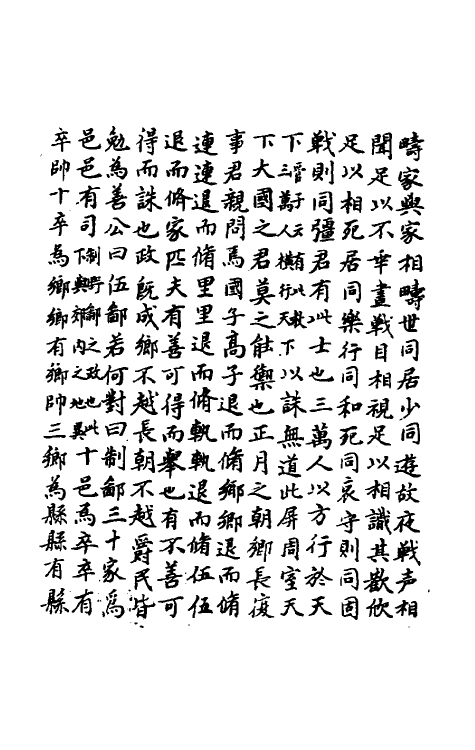 疇家與家相疇世同居少同遊故夜戰声相
聞足以不乖晝戰目相視足以相識其歡欣
足以相死居同樂行同和死同哀守則同固
戰則同彊君有此士也三萬人以方行於天
下三管子云有此教士萬人橫行天下以誅無道此屏周室天
下大國之君莫之能禦也正月之朝鄉長復
事君親問焉國子高子退而脩鄉鄉退而脩
連連退而脩里里退而脩軌軌退而脩伍伍
退而脩家匹夫有善可得而舉也有不善可
得而誅也政既成鄉不越長朝不越爵民皆
勉為善公曰伍鄙若何對曰制鄙三十家為
邑邑有司制野鄙之政也此下與郊內之地異十邑為卒卒有
卒帥十卒為鄉鄉有鄉帥三鄉為縣縣有縣